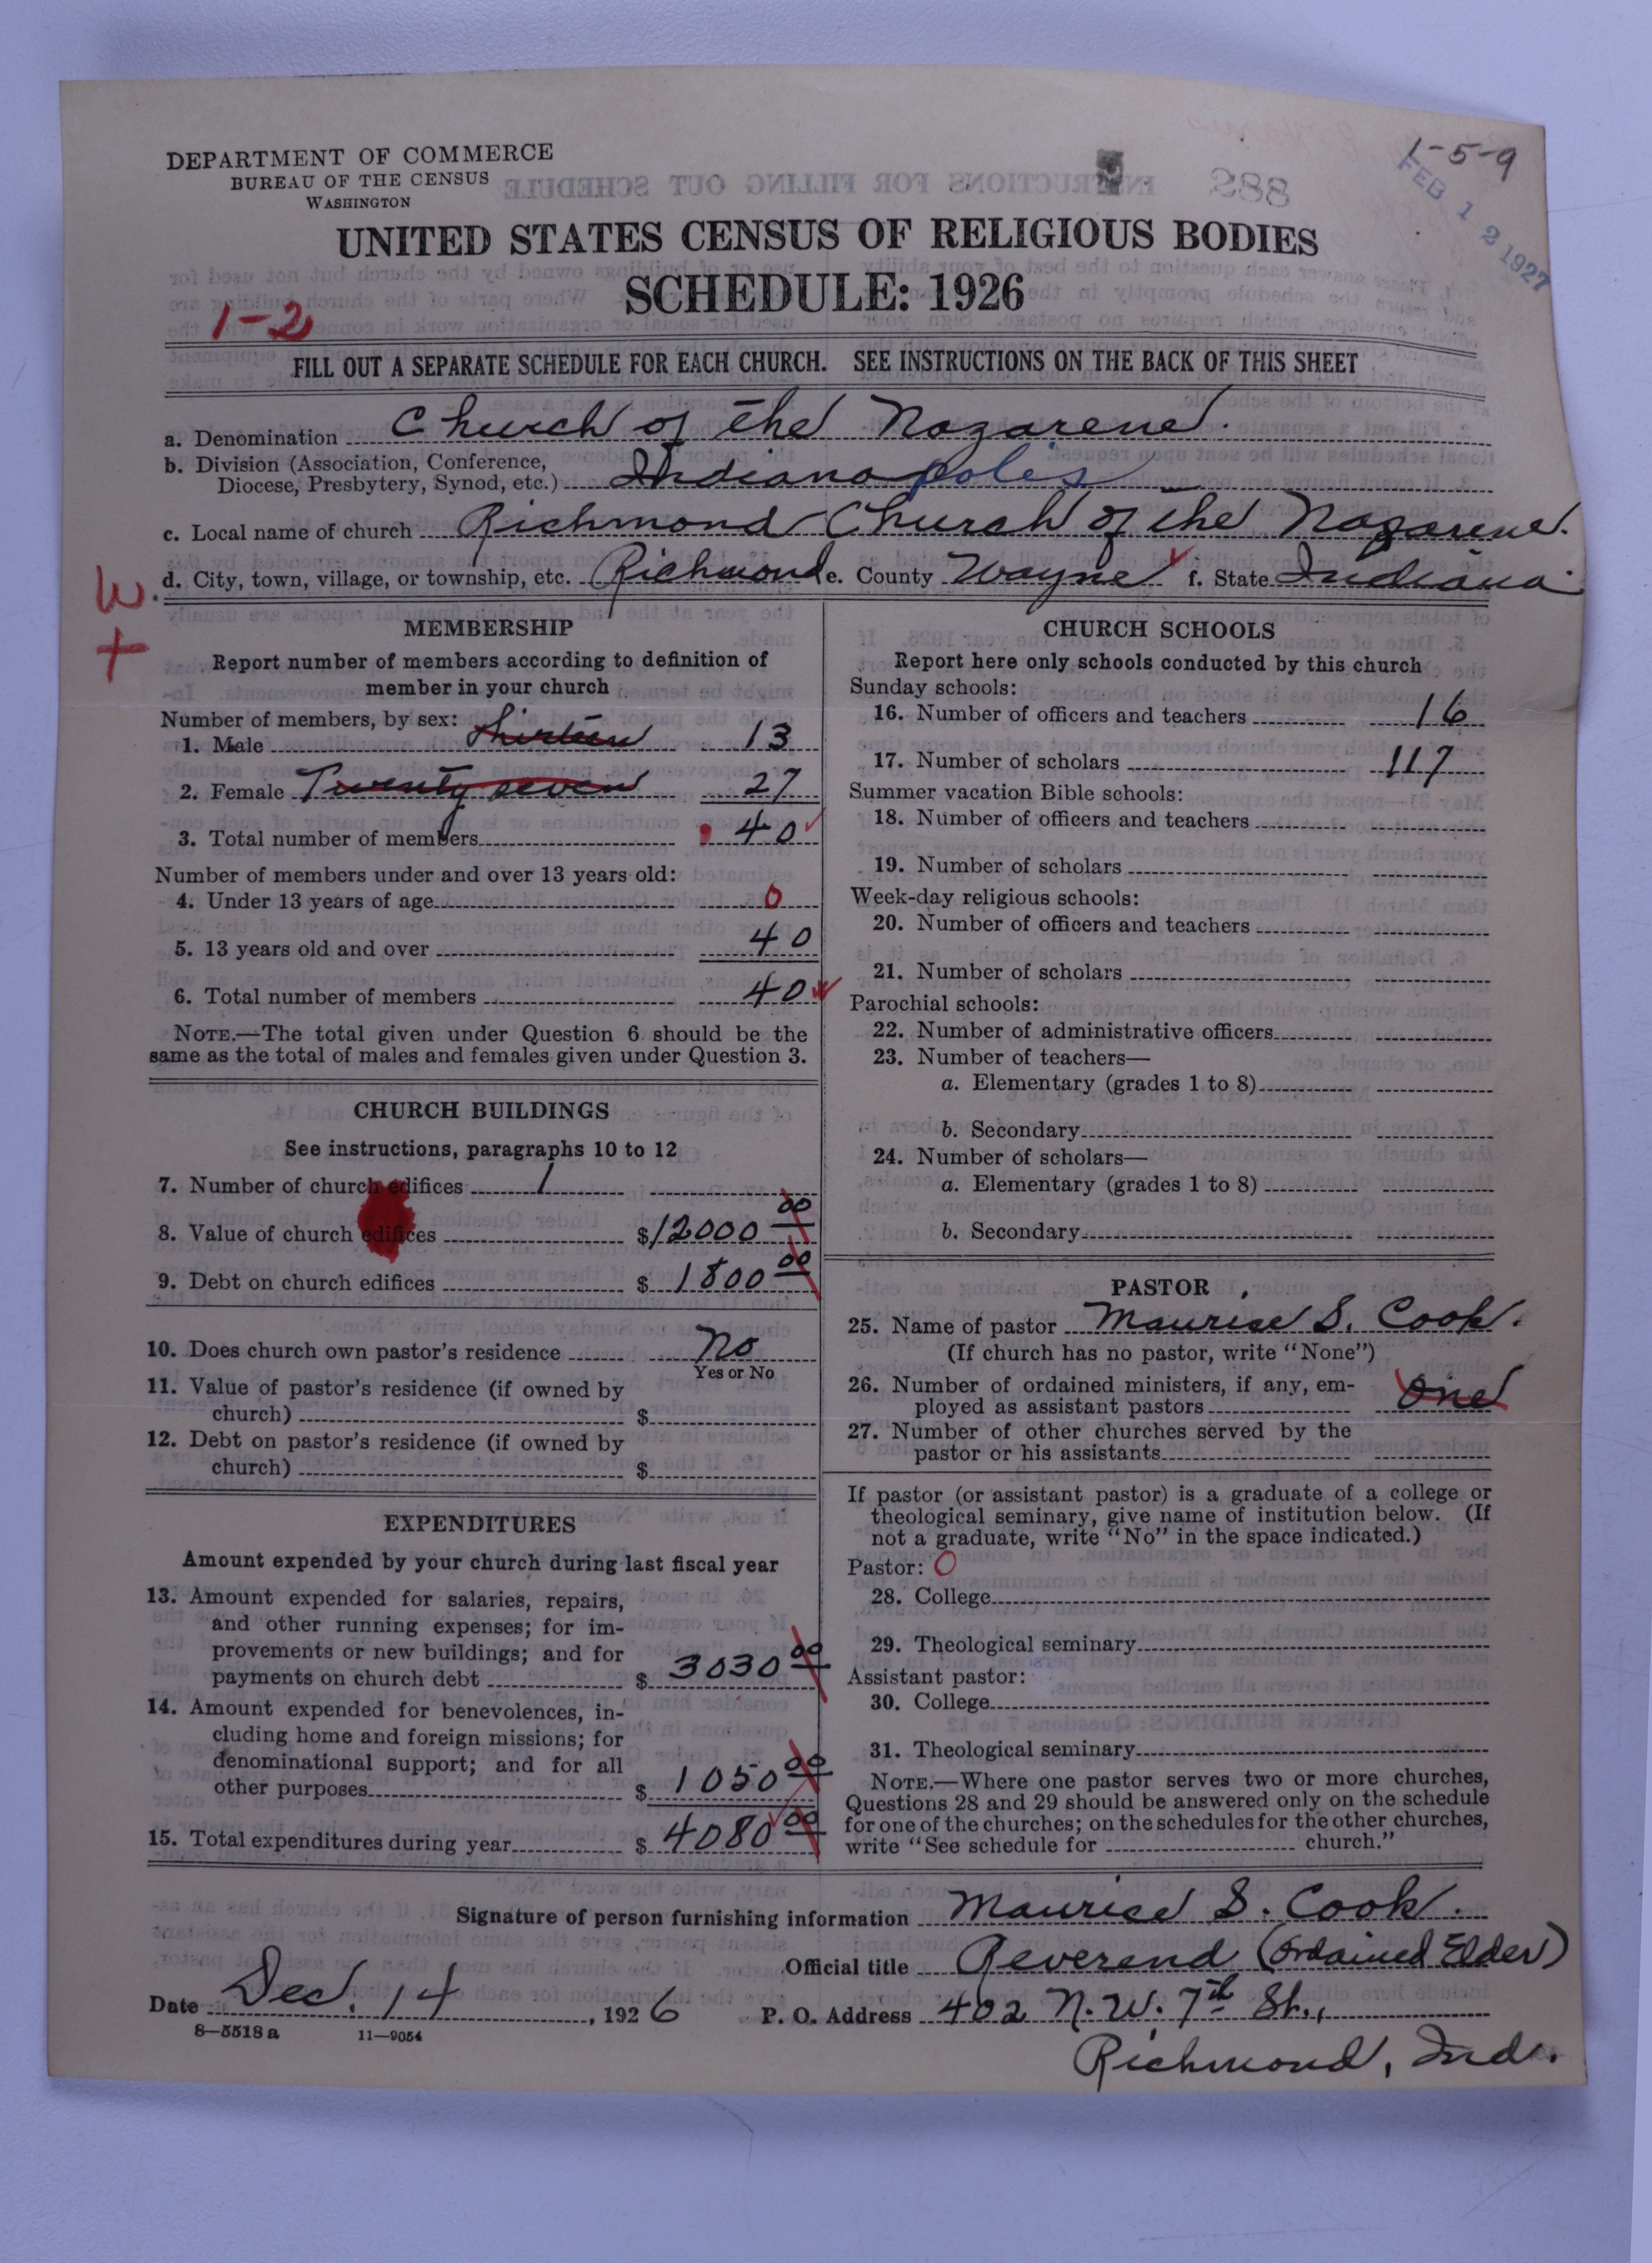 1-5-9
DEPARTMENT OF COMMERCE
BUREAU OF THE CENSUS
WASHINGTON
288
FEB 12 1927
UNITED STATES CENSUS OF RELIGIOUS BODIES
SCHEDULE: 1926
1-2
FILL OUT A SEPARATE SCHEDULE FOR EACH CHURCH. SEE INSTRUCTIONS ON THE BACK OF THIS SHEET
a. Denomination Church of the Nazarene.
b. Division (Association, Conference,
Diocese, Presbytery, Synod, etc.) Indianapoles
c. Local name of church Richmond Church of the Nazarene.
d. City, town, village, or township, etc. Richmond e. County Wayne f. State Indiana.
W.
+
MEMBERSHIP
Report number of members according to definition of
member in your church
Number of members, by sex:
1. Male Thirteen 13
2. Female Twenty seven 27
3. Total number of members 40
Number of members under and over 13 years old:
4. Under 13 years of age 0
5. 13 years old and over 40
6. Total number of members 40
NOTE.—The total given under Question 6 should be the
same as the total of males and females given under Question 3.
CHURCH BUILDINGS
See instructions, paragraphs 10 to 12
7. Number of church edifices 1
8. Value of church edifices $12000 00
9. Debt on church edifices $ 1800 00
10. Does church own pastor's residence No
Yes or No
11. Value of pastor's residence (if owned by
church) $
12. Debt on pastor's residence (if owned by
church) $
EXPENDITURES
Amount expended by your church during last fiscal year
13. Amount expended for salaries, repairs,
and other running expenses; for im-
provements or new buildings; and for
payments on church debt $ 3030 00
14. Amount expended for benevolences, in-
cluding home and foreign missions; for
denominational support; and for all
other purposes $ 1050 00
15. Total expenditures during year $ 4080 00
CHURCH SCHOOLS
Report here only schools conducted by this church
Sunday schools:
16. Number of officers and teachers 16
17. Number of scholars 117
Summer vacation Bible schools:
18. Number of officers and teachers
19. Number of scholars
Week-day religious schools:
20. Number of officers and teachers
21. Number of scholars
Parochial schools:
22. Number of administrative officers
23. Number of teachers—
a. Elementary (grades 1 to 8)
b. Secondary
24. Number of scholars—
a. Elementary (grades 1 to 8)
b. Secondary
PASTOR
25. Name of pastor Maurise S. Cook.
(If church has no pastor, write "None")
26. Number of ordained ministers, if any, em-
ployed as assistant pastors One
27. Number of other churches served by the
pastor or his assistants
If pastor (or assistant pastor) is a graduate of a college or
theological seminary, give name of institution below. (If
not a graduate, write "No" in the space indicated.)
Pastor: O
28. College
29. Theological seminary
Assistant pastor:
30. College
31. Theological seminary
NOTE.—Where one pastor serves two or more churches,
Questions 28 and 29 should be answered only on the schedule
for one of the churches; on the schedules for the other churches,
write "See schedule for church."
Signature of person furnishing information Maurise S. Cook.
Official title Reverend (Ordained Elder)
Date Dec. 14, 1926 P. O. Address 402 N.W. 7th St.,
8—5518 a 11—9054
Richmond, Ind.